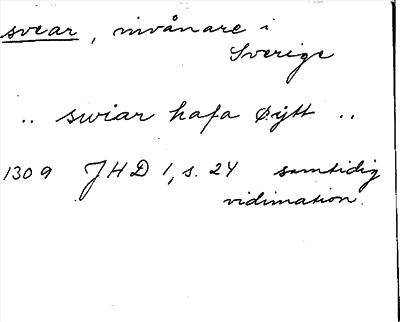 svear, invånare i
Sverige
.. swiar hafa þýtt ..
1309 JHD 1, s. 24 samtidig
vidimation.